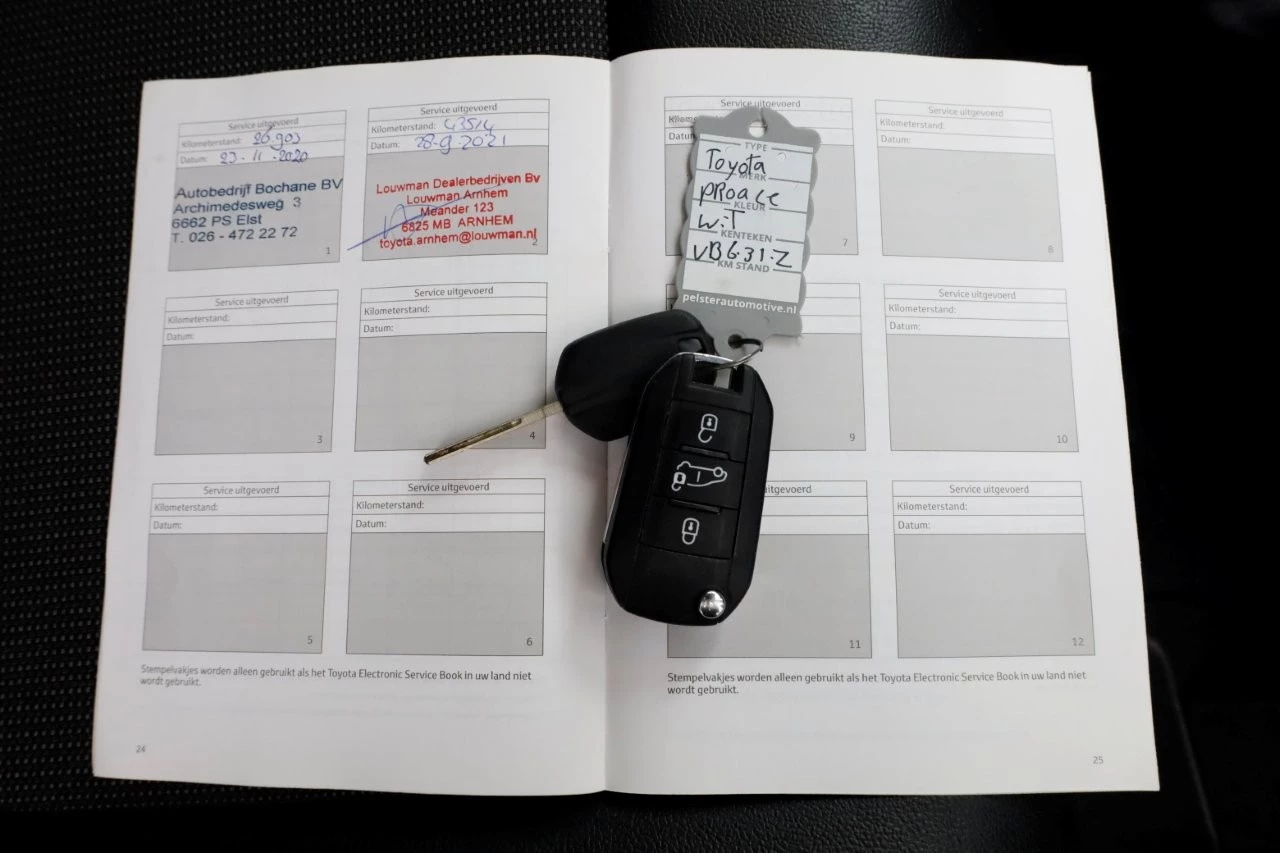 Service uitgevoerd
Kilometerstand: 26.903
Datum: 23-11-2020
Autobedrijf Bochane BV
Archimedesweg 3
6662 PS Elst
T. 026 - 472 22 72
1
Service uitgevoerd
Kilometerstand: 43514
Datum: 28-9-2021
Louwman Dealerbedrijven Bv
Louwman Arnhem
Meander 123
6825 MB ARNHEM
toyota.arnhem@louwman.nl
2
Service uitgevoerd
Kilometerstand:
Datum:
3
Service uitgevoerd
Kilometerstand:
Datum:
4
Service uitgevoerd
Kilometerstand:
Datum:
5
Service uitgevoerd
Kilometerstand:
Datum:
6
Stempelvakjes worden alleen gebruikt als het Toyota Electronic Service Book in uw land niet
wordt gebruikt.
24
Service uitgevoerd
7
TYPE
Toyota
MERK
PROACE
KLEUR
WIT
KENTEKEN
VB631Z
KM STAND
pelsterautomotive.nl
Service uitgevoerd
Kilometerstand:
Datum:
8
9
Service uitgevoerd
Kilometerstand:
Datum:
10
uitgevoerd
11
Service uitgevoerd
Kilometerstand:
Datum:
12
Stempelvakjes worden alleen gebruikt als het Toyota Electronic Service Book in uw land niet
wordt gebruikt.
25